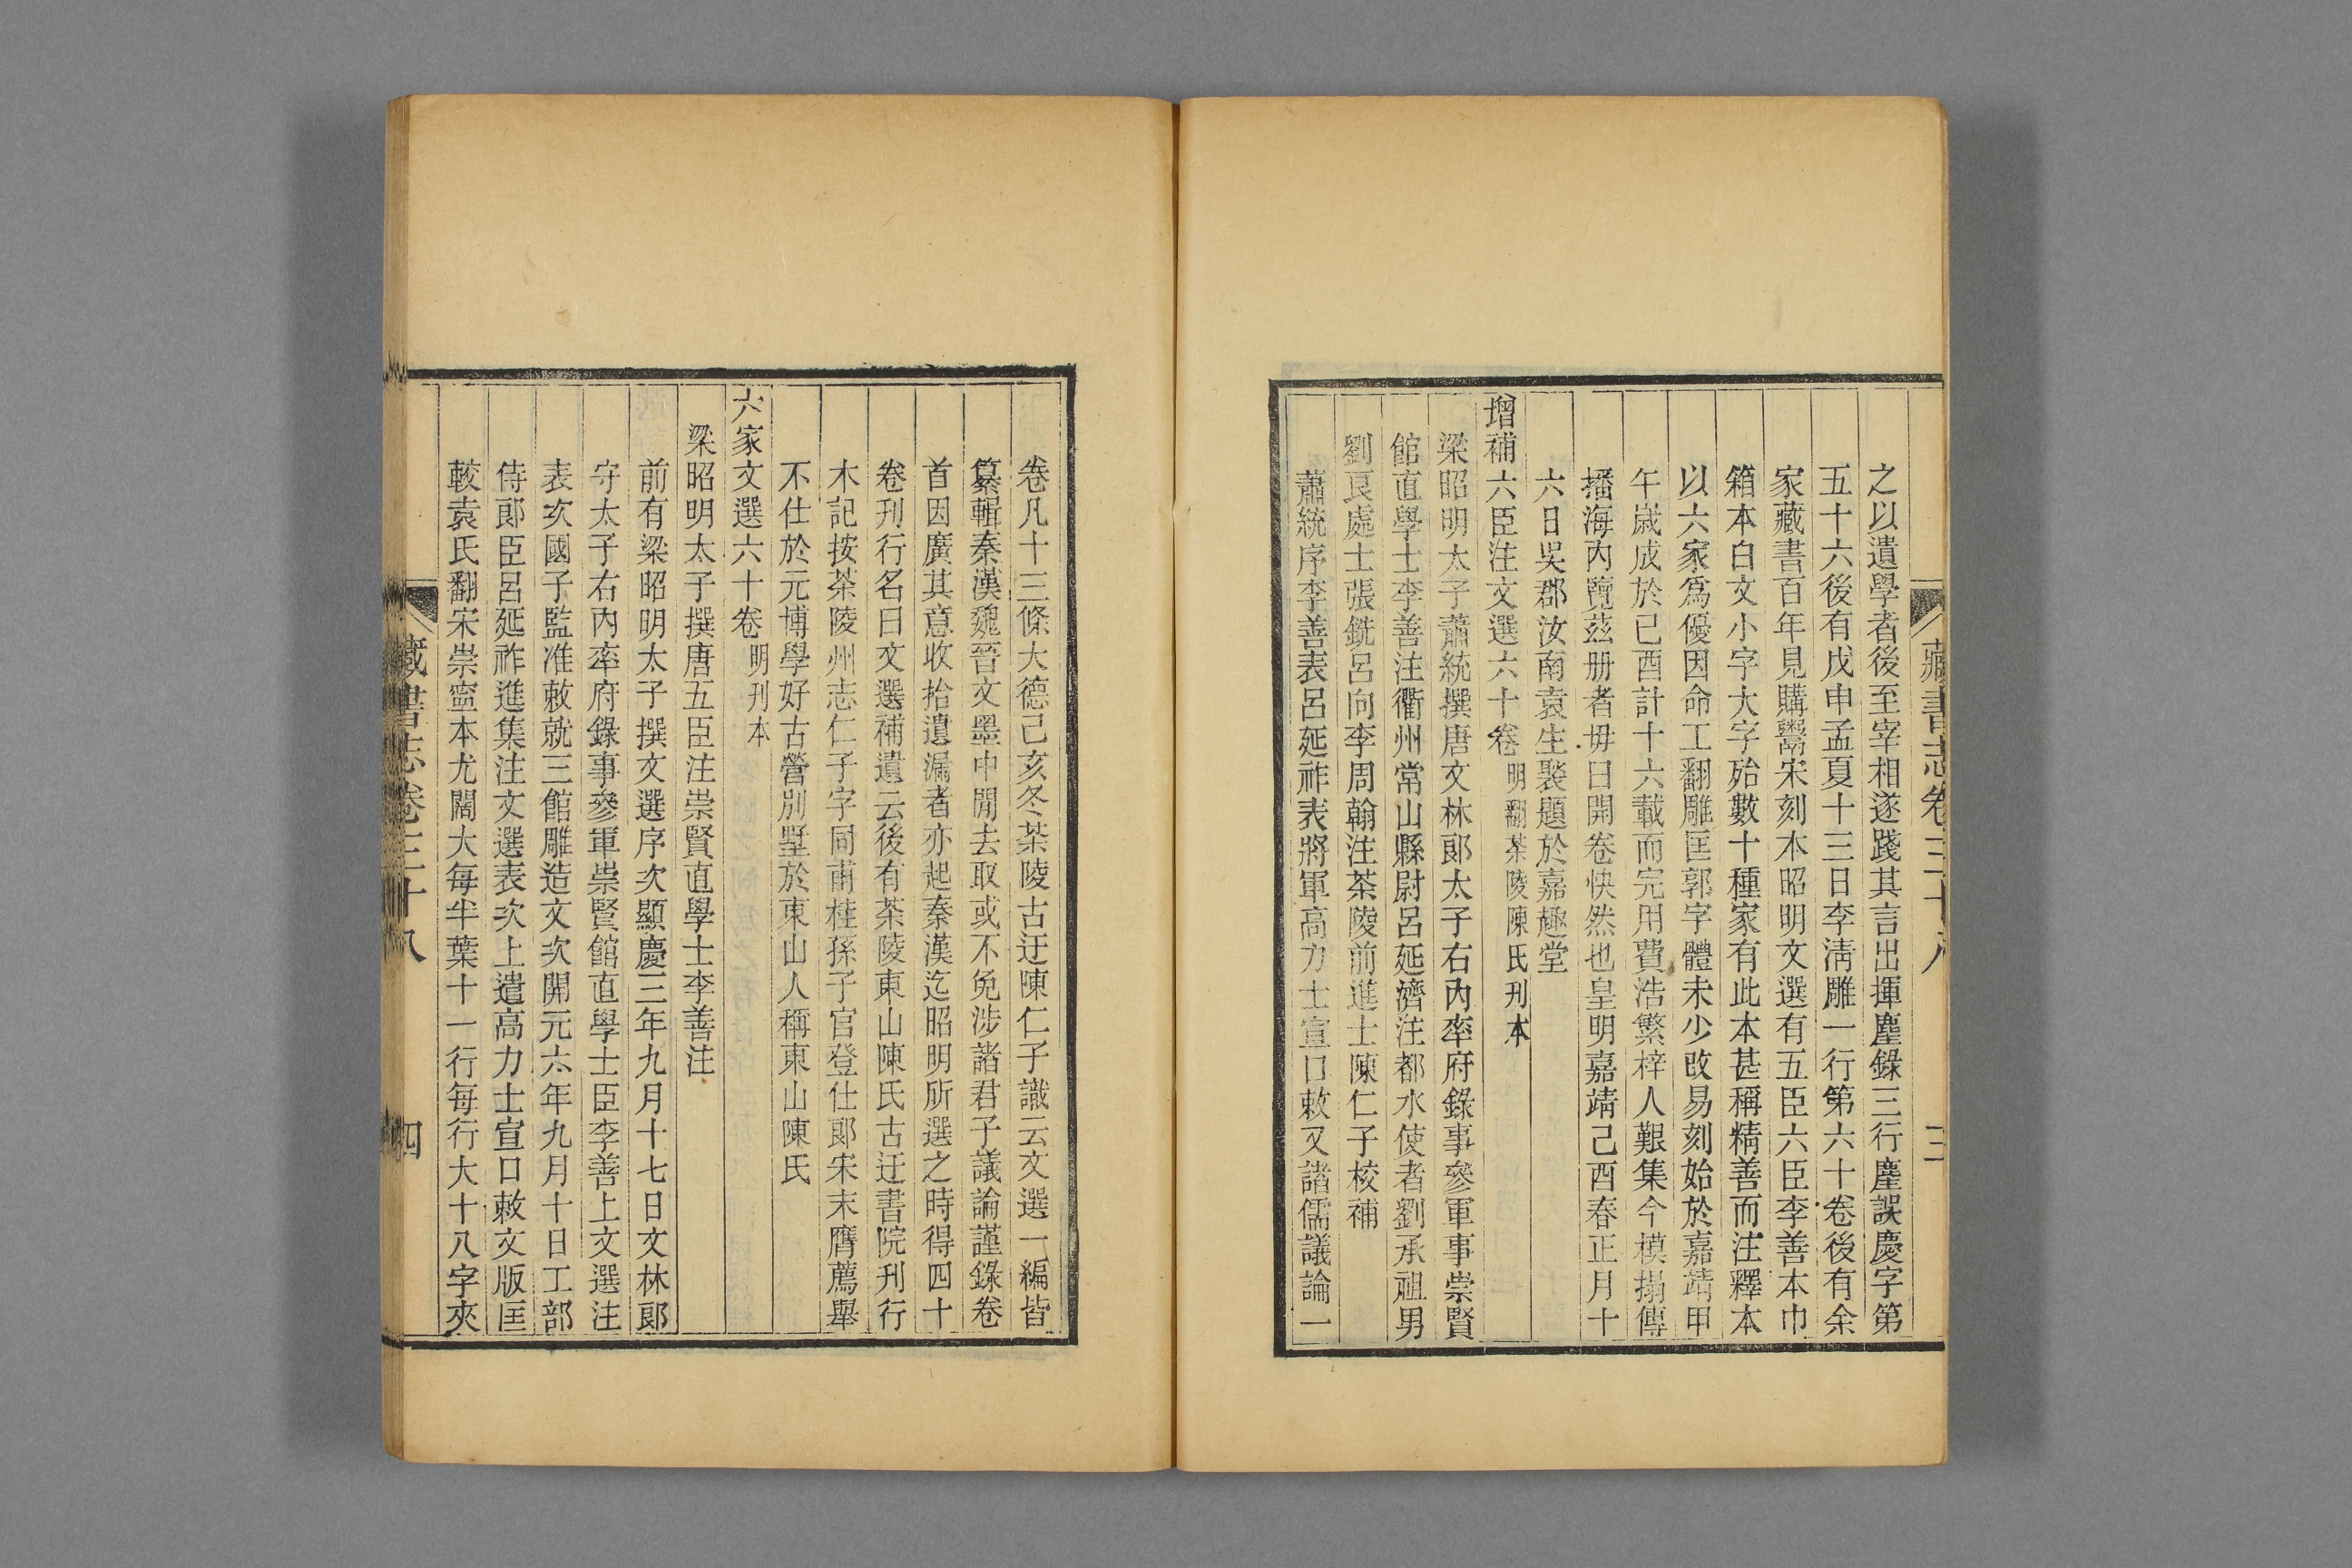 藏書志卷三十八 三
之以遺學者後至宰相遂踐其言出揮塵錄三行塵誤慶字第
五十六後有戊申孟夏十三日李清雕一行第六十卷後有余
家藏書百年見購鬻宋刻本昭明文選有五臣六臣李善本巾
箱本白文小字大字殆數十種家有此本甚稱精善而注釋本
以六家爲優因命工翻雕匡郭字體未少改易刻始於嘉靖甲
午歲成於己酉計十六載而完用費浩繁梓人艱集今模搨傳
播海內覽茲册者毋曰開卷快然也皇明嘉靖己酉春正月十
六日吳郡汝南袁生褧題於嘉趣堂
增補六臣注文選六十卷明翻茶陵陳氏刊本
梁昭明太子蕭統撰唐文林郎太子右內率府錄事參軍事崇賢
館直學士李善注衢州常山縣尉呂延濟注都水使者劉承祖男
劉良處士張銑呂向李周翰注茶陵前進士陳仁子校補
蕭統序李善表呂延祚表將軍高力士宣口敕又諸儒議論一
卷凡十三條大德己亥冬茶陵古迂陳仁子識云文選一編皆
纂輯秦漢魏晉文墨中閒去取或不免涉諸君子議論謹錄卷
首因廣其意收拾遺漏者亦起秦漢迄昭明所選之時得四十
卷刊行名曰文選補遺云後有茶陵東山陳氏古迂書院刊行
木記按茶陵州志仁子字同甫桂孫子官登仕郎宋末膺薦舉
不仕於元博學好古營別墅於東山人稱東山陳氏
六家文選六十卷明刊本
梁昭明太子撰唐五臣注崇賢直學士李善注
前有梁昭明太子撰文選序次顯慶三年九月十七日文林郎
守太子右內率府錄事參軍崇賢館直學士臣李善上文選注
表次國子監准敕就三館雕造文次開元六年九月十日工部
侍郎臣呂延祚進集注文選表次上遣高力士宣口敕文版匡
較袁氏翻宋崇寧本尤闊大每半葉十一行每行大十八字夾
藏書志卷三十八 四